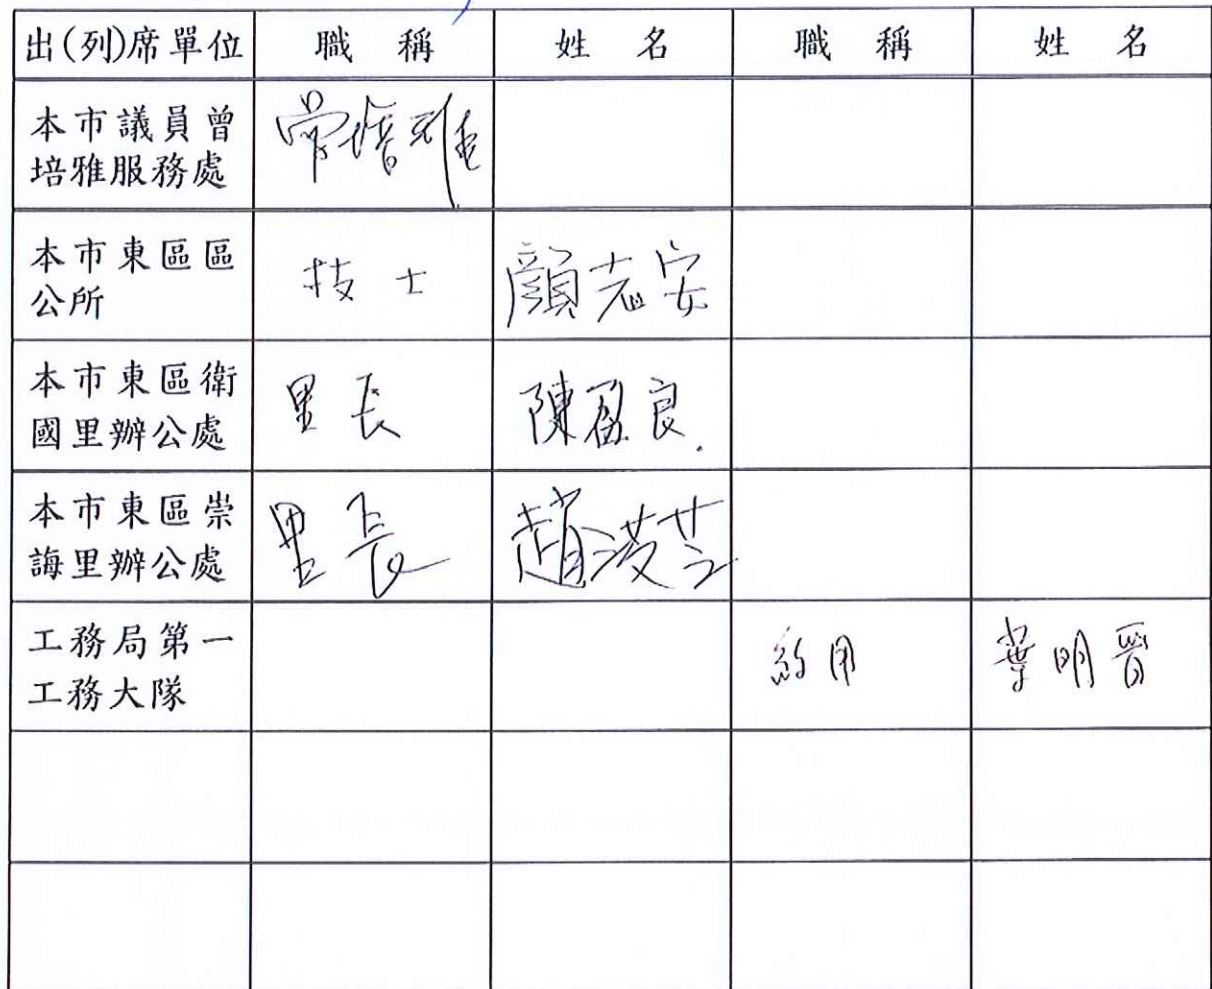 出(列)席單位 職稱 姓名 職稱 姓名
本市議員曾
培雅服務處
曾培雅
本市東區區
公所
技士 顏志安
本市東區衛
國里辦公處
里長 陳盈良
本市東區崇
誨里辦公處
里長 趙浚芝
工務局第一
工務大隊
約用 葉明晉